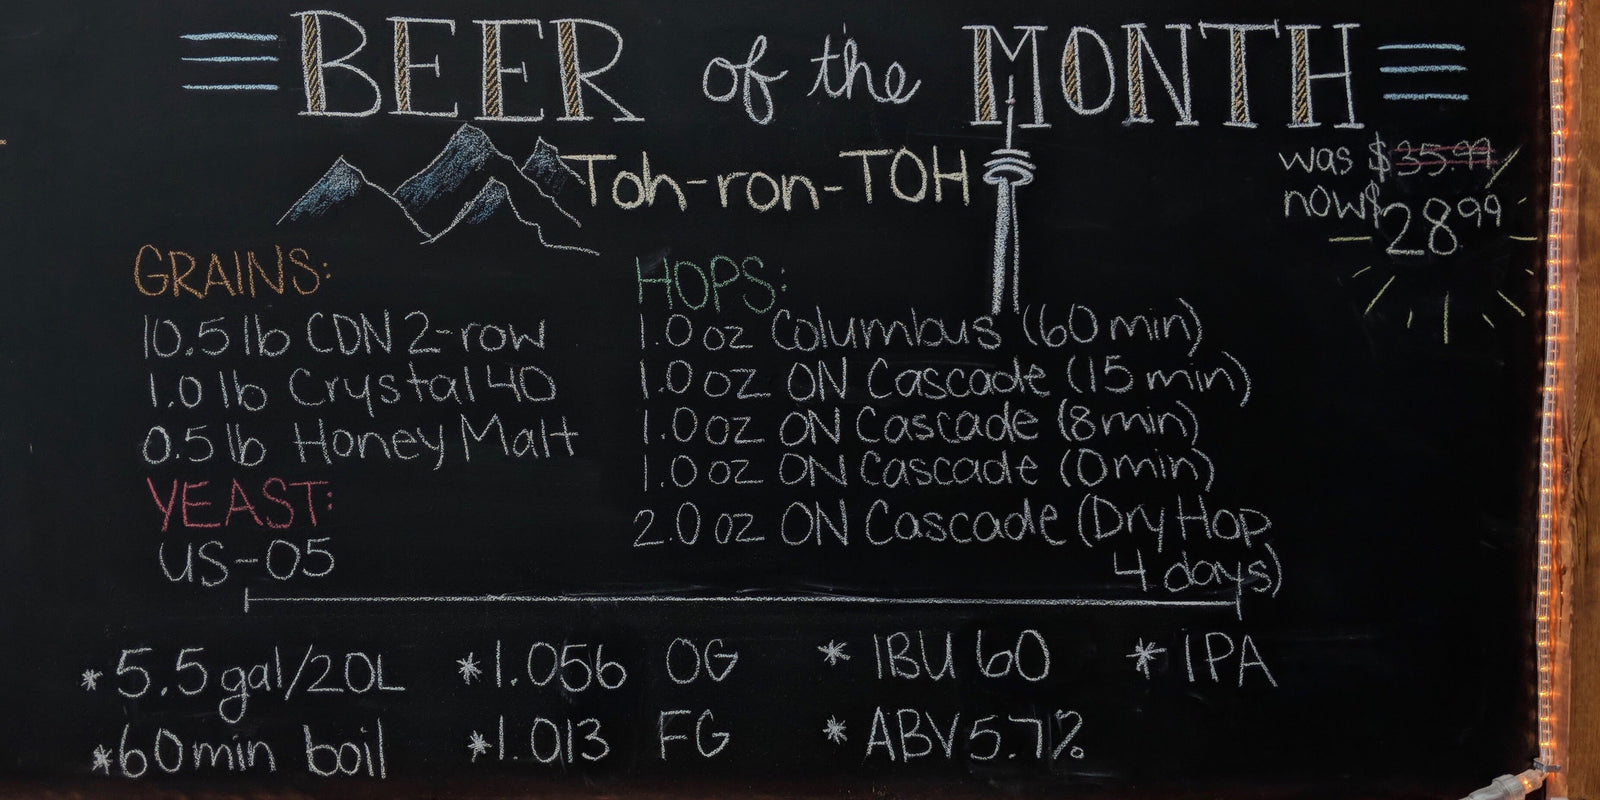 BEER of the MONTH
Toh-ron-TOH
was $35.99
now $28.99
GRAINS:
10.5 lb CDN 2-row
1.0 lb Crystal 40
0.5 lb Honey Malt
YEAST:
US-05
HOPS:
1.0 oz Columbus (60 min)
1.0 oz ON Cascade (15 min)
1.0 oz ON Cascade (8 min)
1.0 oz ON Cascade (0 min)
2.0 oz ON Cascade (Dry Hop
4 days)
* 5.5 gal/20L * 1.056 OG * IBU 60 * IPA
* 60 min boil * 1.013 FG * ABV 5.7%